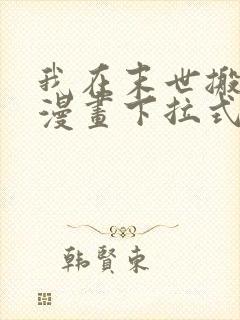 我在末世搬
漫畫下拉式
韩賢東